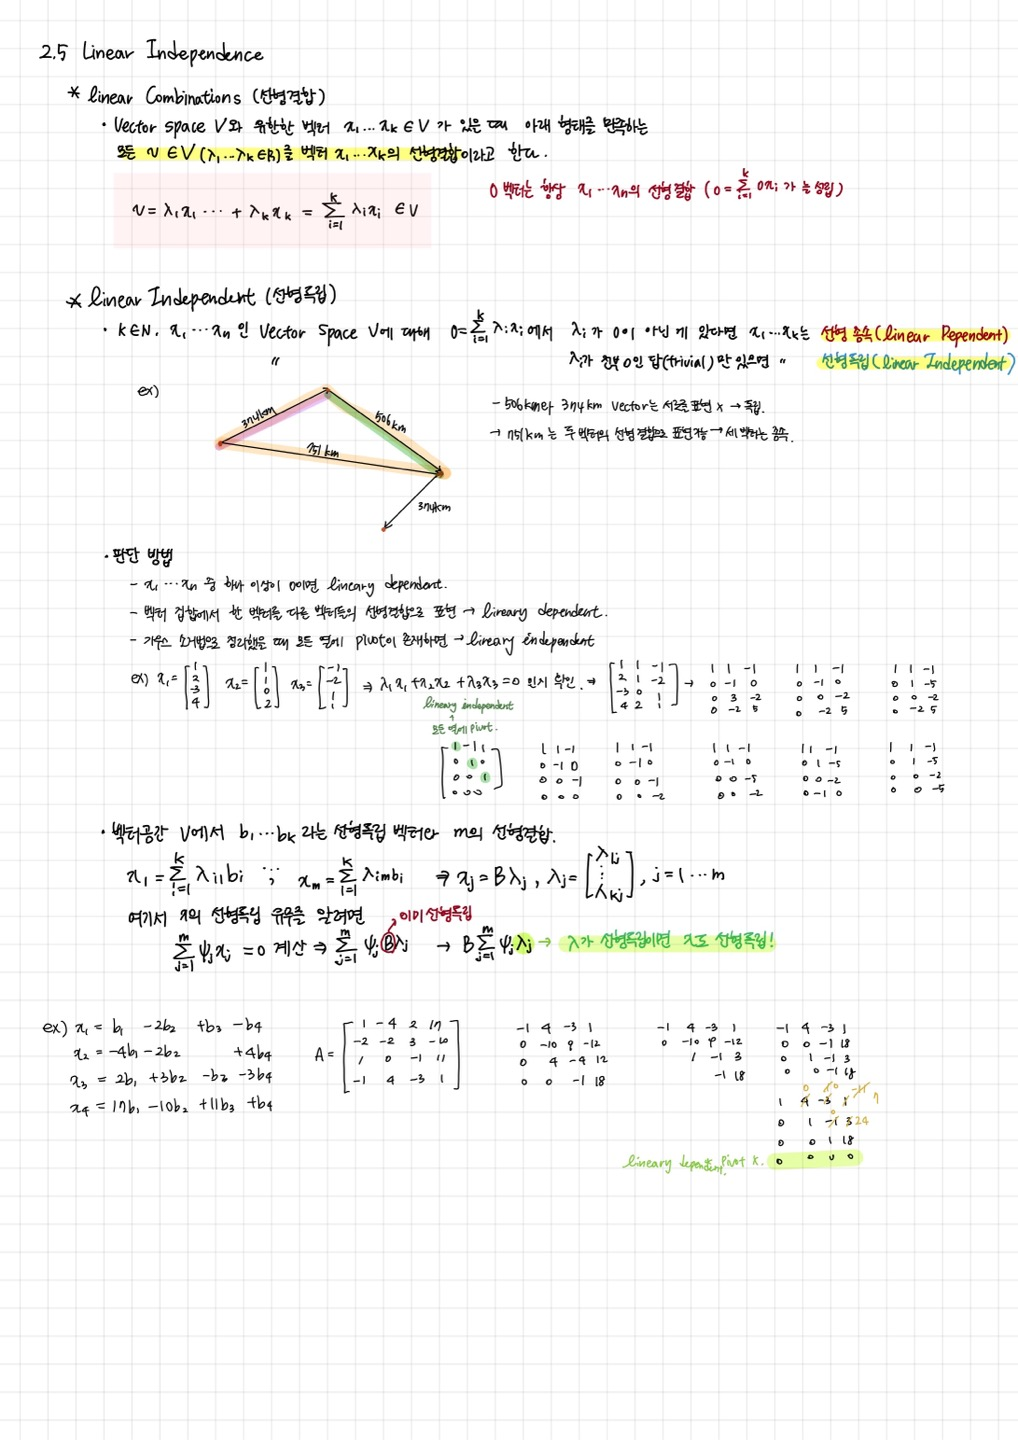 2.5 Linear Independence
* linear Combinations (선형결합)
· Vector space V와 유한한 벡터 x₁...xₖ ∈ V 가 있을 때 아래 형태를 만족하는
모든 v ∈ V (λ₁...λₖ ∈ R)를 벡터 x₁...xₖ의 선형결합이라고 한다.
v = λ₁x₁ ··· + λₖxₖ = Σ_{i=1}^{k} λᵢxᵢ ∈ V
0 벡터는 항상 x₁ ··· xₙ의 선형결합 (0 = Σ_{i=1}^{k} 0xᵢ 가 늘 성립)
* linear Independent (선형독립)
· k∈N. x₁ ··· xₙ 인 Vector Space V에 대해 0 = Σ_{i=1}^{k} λᵢxᵢ에서 λᵢ가 0이 아닌 게 있다면 x₁...xₖ는 선형 종속(linear Dependent)
〃 λᵢ가 전부 0인 답(trivial)만 있으면 〃 선형독립(linear Independent)
ex)
374km
506km
751km
374km
- 506km와 374km Vector는 서로를 표현 x → 독립.
→ 751km는 두 벡터의 선형결합으로 표현가능 → 세 벡터는 종속.
· 판단 방법
- x₁ ··· xₙ 중 하나 이상이 0이면 lineary dependent.
- 벡터 집합에서 한 벡터를 다른 벡터들의 선형결합으로 표현 → lineary dependent.
- 가우스 소거법으로 정리했을 때 모든 열에 pivot이 존재하면 → lineary independent
ex) x₁ = [1 2 -3 4] x₂ = [1 1 0 2] x₃ = [-1 -2 1 1] ⇒ λ₁x₁ + λ₂x₂ + λ₃x₃ = 0 인지 확인. ⇒
1 1 -1 → 1 1 -1 1 1 -1 1 1 -1
2 1 -2 0 -1 0 0 -1 0 0 1 -5
-3 0 1 0 3 -2 0 0 -2 0 0 -2
4 2 1 0 -2 5 0 -2 5 0 -2 5
lineary independent
↑
모든 열에 pivot.
1 -1 1 1 1 -1 1 1 -1 1 1 -1 1 1 -1 1 1 -1
0 1 0 0 -1 0 0 -1 0 0 -1 0 0 1 -5 0 1 -5
0 0 1 0 0 -1 0 0 -1 0 0 -5 0 0 -2 0 0 -2
0 0 0 0 0 0 0 0 -2 0 0 -2 0 -1 0 0 0 -5
· 벡터공간 V에서 b₁...bₖ 라는 선형독립 벡터와 m의 선형결합.
x₁ = Σ_{i=1}^{k} λᵢ₁bᵢ ⋱ xₘ = Σ_{i=1}^{k} λᵢₘbᵢ ⇒ xⱼ = Bλⱼ, λⱼ = [λ₁ⱼ ⋮ λₖⱼ], j = 1 ··· m
여기서 x의 선형독립 유무를 알려면
이미 선형독립
Σ_{j=1}^{m} ψⱼxⱼ = 0 계산 ⇒ Σ_{j=1}^{m} ψⱼBλⱼ → BΣ_{j=1}^{m} ψⱼλⱼ → λ가 선형독립이면 x도 선형독립!
ex) x₁ = b₁ -2b₂ +b₃ -b₄
x₂ = -4b₁ -2b₂ +4b₄
x₃ = 2b₁ +3b₂ -b₃ -3b₄
x₄ = 17b₁ -10b₂ +11b₃ +b₄
A =
1 -4 2 17
-2 -2 3 -10
1 0 -1 11
-1 4 -3 1
-1 4 -3 1
0 -10 9 -12
0 4 -4 12
0 0 -1 18
-1 4 -3 1
0 -10 9 -12
1 -1 3
-1 18
-1 4 -3 1
0 0 -1 18
0 1 -1 3
0 0 -1 18
1 4 -3 1
0 1 -1 3 24
0 0 1 18
0 0 0 0
lineary dependent. pivot x.